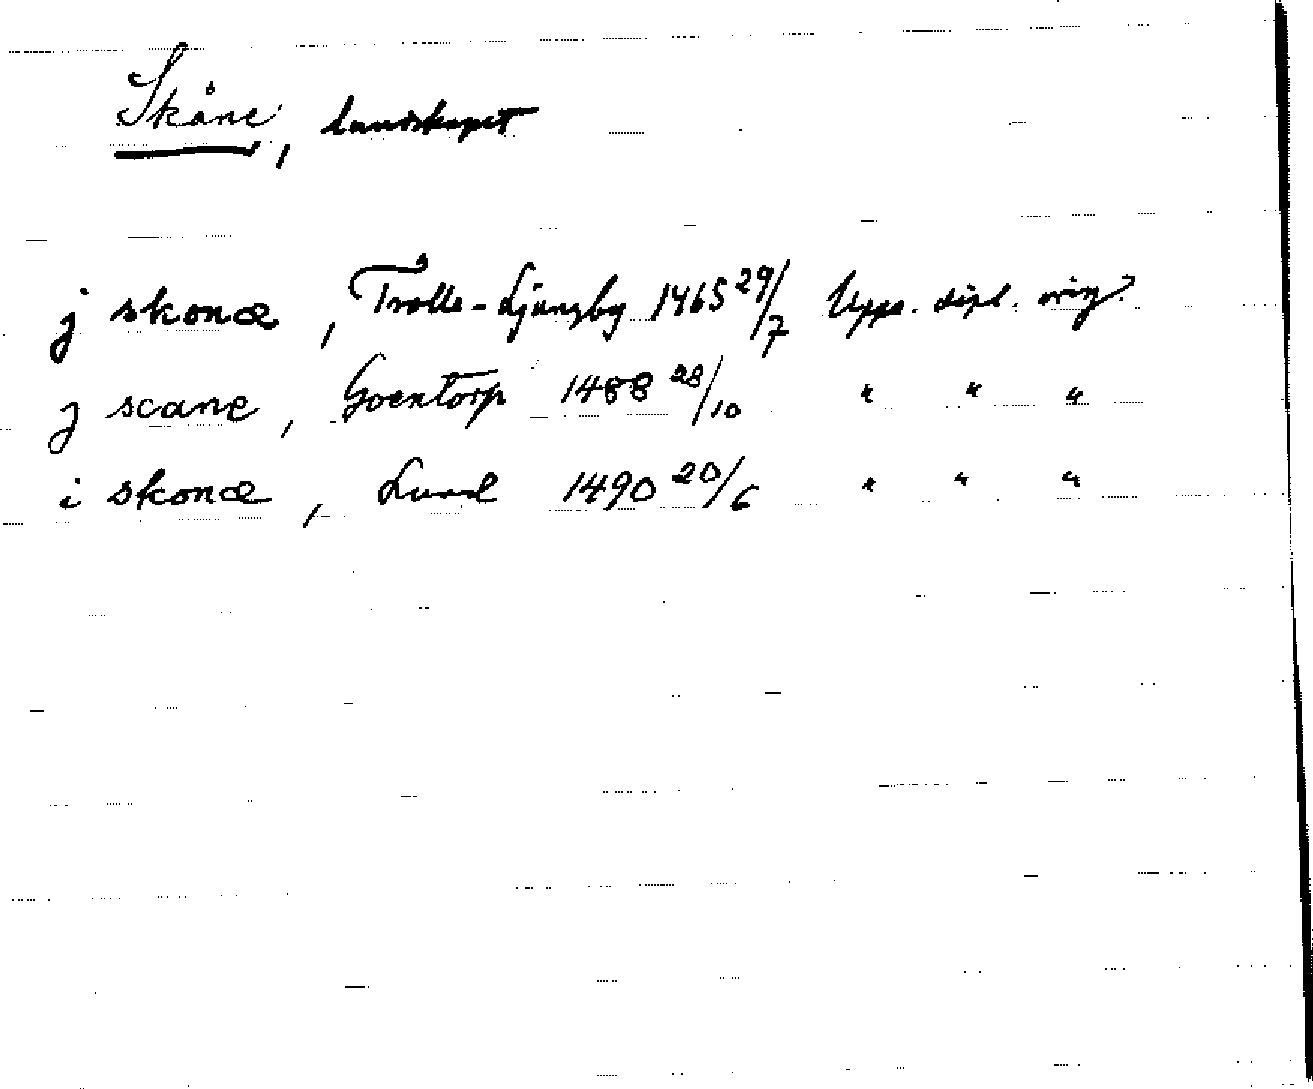 Skåne, landskapet
j skonæ, Trolle-Ljungby 1465 29/7 Upps. dipl. orig.
j scane, Goentorp 1488 28/10 " " "
i skonæ, Lund 1490 20/6 " " "